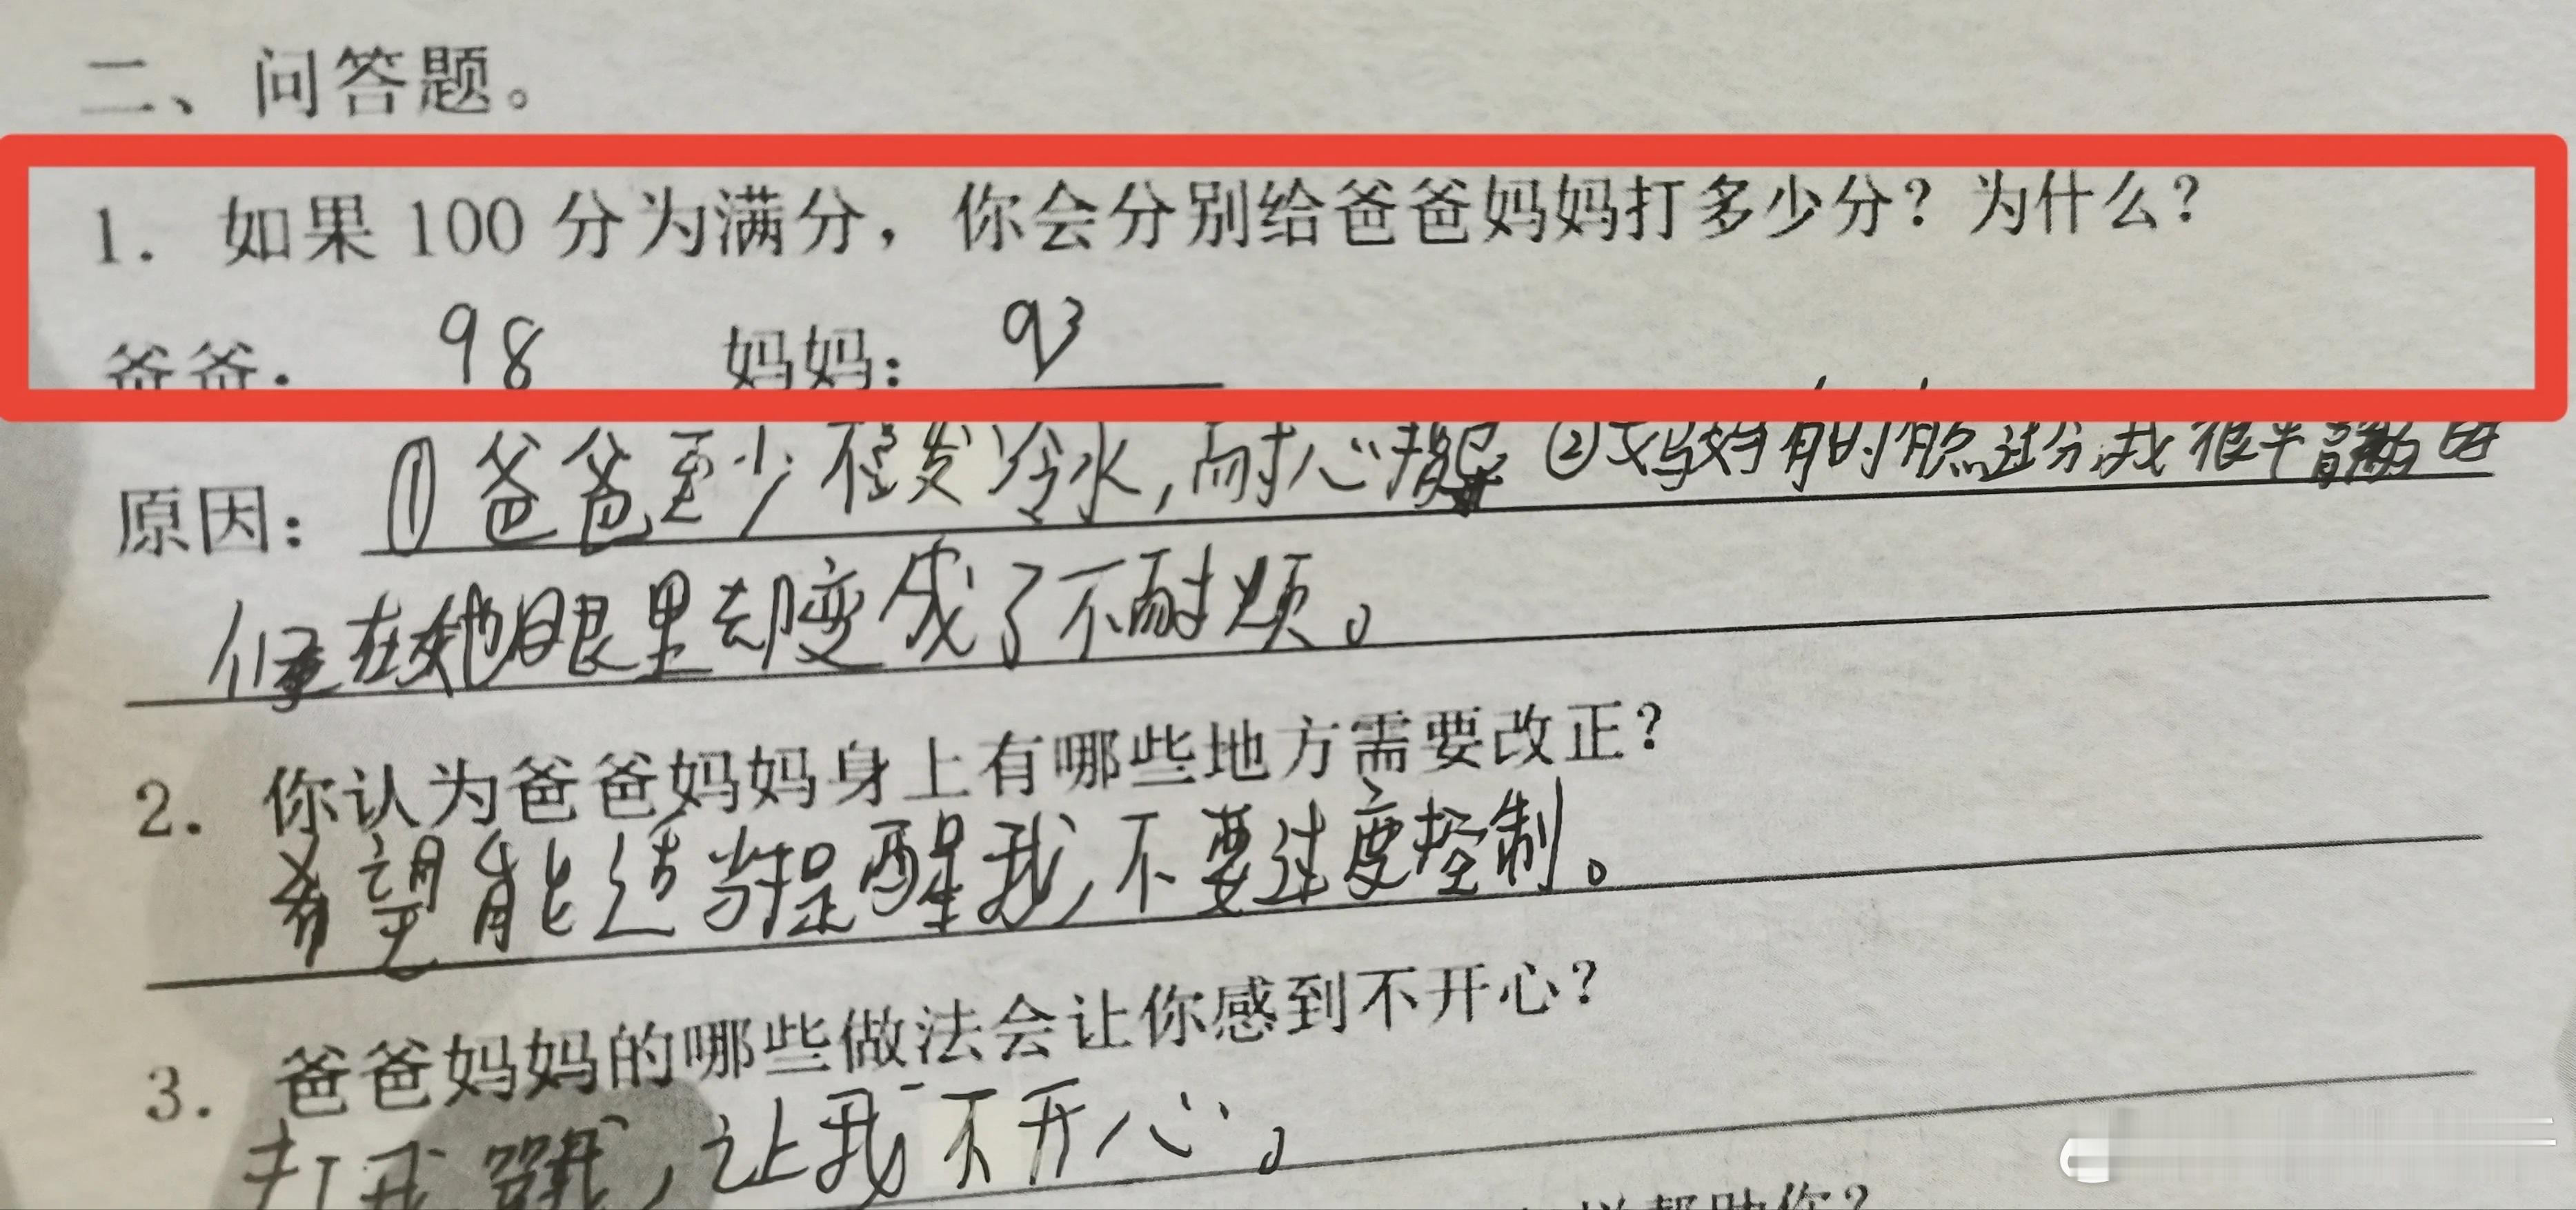 二、问答题。
1. 如果 100 分为满分，你会分别给爸爸妈妈打多少分？为什么？
爸爸： 98 妈妈： 93
原因： ①爸爸至少不发冷水，耐心 ②妈妈有时有点过分，我很平静的
但在她眼里却变成了不耐烦。
2. 你认为爸爸妈妈身上有哪些地方需要改正？
希望能适当提醒我，不要过度控制。
3. 爸爸妈妈的哪些做法会让你感到不开心？
打我骂我，让我不开心。
帮助你？